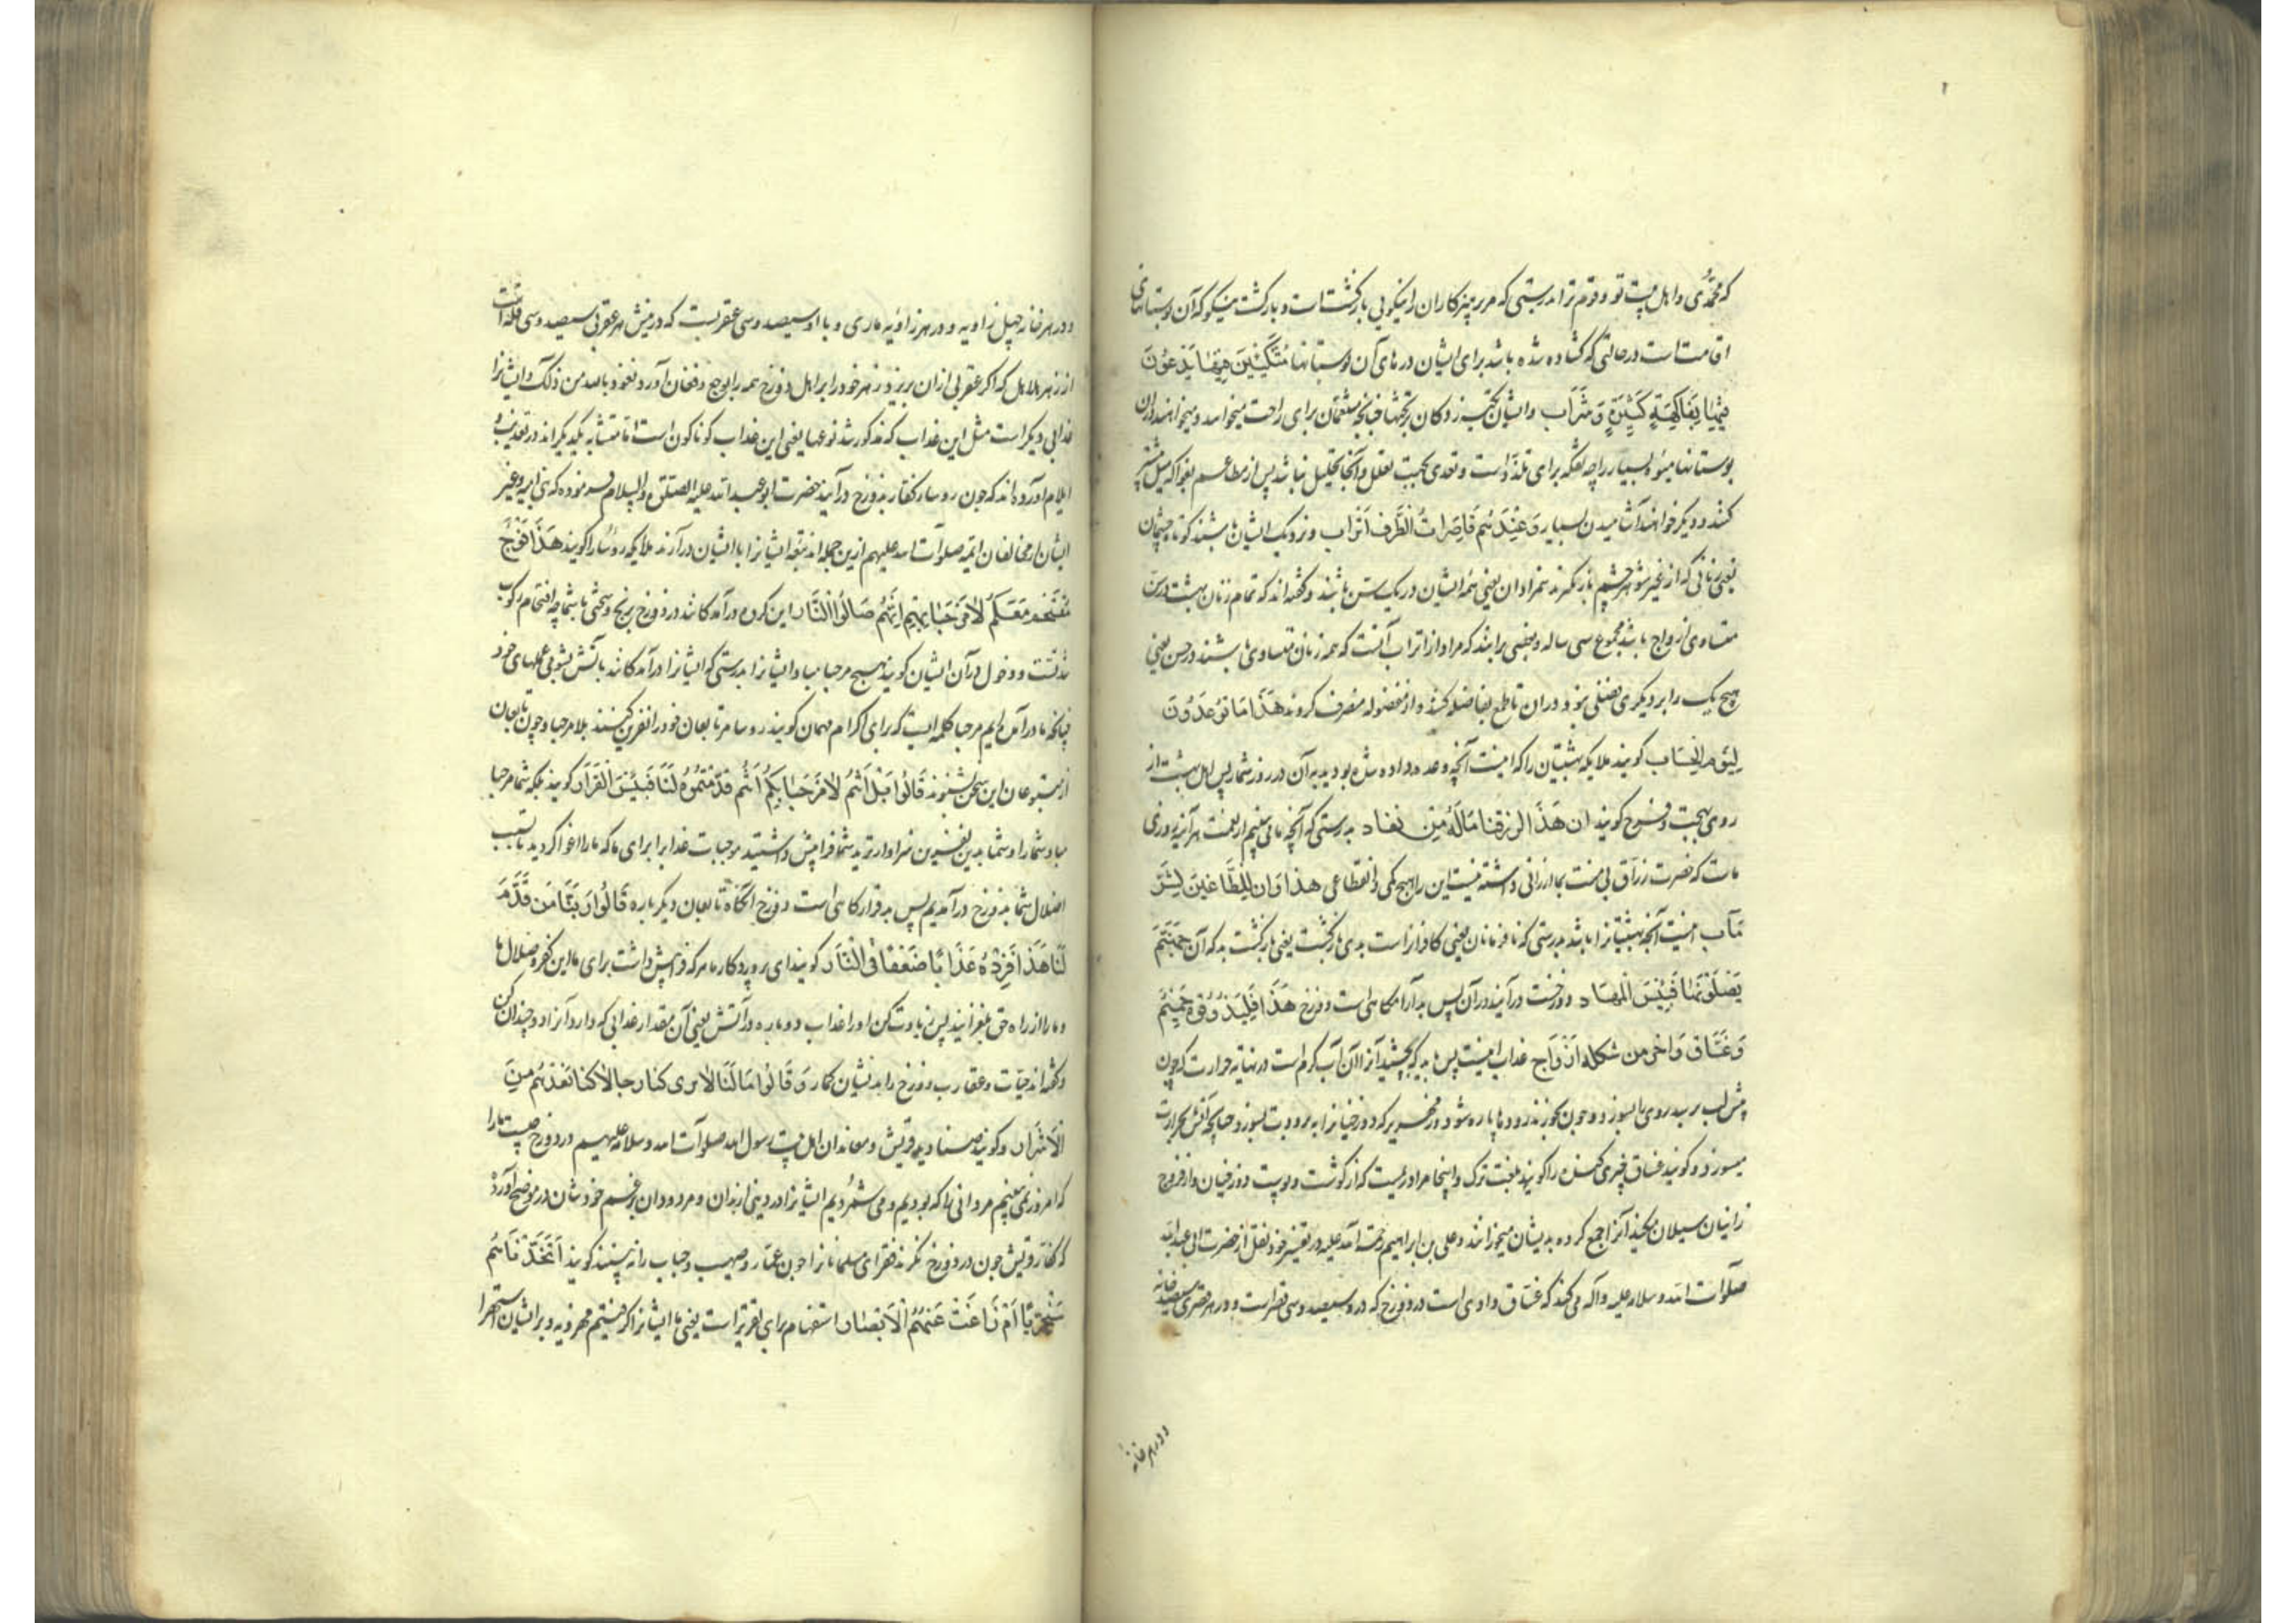 که محمدی و اهل بیت تو و قوم ترا بدرستی که مر پرهیزکاران را نیکویی بازکشت است و بازکشت نیکو که آن بوستانهای
اقامت است در حالتی که کشاده شده باشد برای ایشان درهای آن بوستانها مُتَّكِئِينَ فِيهَا يَدْعُونَ
فِيهَا بِفَاكِهَةٍ كَثِيرَةٍ وَشَرَاب و ایشان تکیه زدکان بر تختها چنانچه متنعمان برای راحت میخواهند و میخواهند در آن
بوستانها میوه بسیار را چه تفکه برای تلذذ است و تغذی بجهت تحلل و آنجا تحلیل نباشد پس از مطاعم بفواکه میل بیشتر
کنند و دیکر خواهند آشامیدن بسیار وَعِنْدَهُم قَاصِرَاتُ الطَّرْفِ اَتْرَاب و نزدیک ایشان باشند کوتاه چشمان
یعنی زنانی که از غیر شوهر چشم باز کیرند همزادان یعنی همه ایشان در یک سن باشند و کفته اند که تمام زنان بهشت در سن
متساوی ازواج باشد مجموع سی ساله و بعضی برانند که مراد از اتراب آنست که همه زنان متساوی باشند در حسن یعنی
هیچ یک را بر دیکری فضلی نبود در آن تا طبع بفاضله کشد و از مفضوله منصرف کردد هَذَا مَا تُوعَدُونَ
لِيَوْمِ الحِسَاب کویند ملایکه بهشتیان را که اینست آنچه وعده داده شده بودید به آن در روز شمار پس اهل بهشت از
روی بهجت و فرح کویند ان هَذَا لرزقنا مَالَهُ مِن نفاد بدرستی که آنچه ما می بینیم از نعمت هرآینه روزی
ماست که حضرت رزاق بی منت بما ارزانی داشته نیست این را هیچ کمی و انقطاعی هذا وَان لِلطَّاغِينَ لَشَرَّ
مَآب اینست آنچه بهشتیانرا باشد بدرستی که نافرمانان یعنی کافرانراست بدی بازکشت یعنی بازکشت بد که آن جَهَنَّمَ
يَصْلَوْنَهَا فَبِئْسَ الْمِهَاد دوزخست درآیند در آن پس بد آرامکاهی است دوزخ هَذَا فَلْيَذُوقُوهُ حَمِيمٌ
وَغَسَّاق وَاخَر من شكله اَزْوَاج عذاب اینست پس باید که بچشند آنرا آن آب کرم است در نهایة حرارت که چون
پیش لب برسد روی را بسوزد و چون بخورند رودها پاره شود و زمهریر که دوزخیانرا به برودت بسوزد چنانچه آتش بحرارت
میسوزد و کویند غساق چیزی کنده را کویند بلغت ترک و اینجا مراد ریمیست که از کوشت و پوست دوزخیان و از فروج
زانیان سیلان میکند آنرا جمع کرده بدیشان میخورانند و علی بن ابراهیم رحمة الله علیه در تفسیر خود نقل از حضرت ابی عبدالله
صلوات الله و سلامه علیه و آله می کند که غساق وادی است در دوزخ که در و سیصد و سی قصر است و در هر قصری سیصد خانه
و در هر خانه
و در هر خانه چهل زاویه و در هر زاویه ماری و با او سیصد و سی عقربست که در نیش هر عقربی سیصد و سی قله است
از زهر هلاهل که اکر عقربی از آن بریزد زهر خود را بر اهل دوزخ همه را بوجع و فغان آورد نعوذ بالله من ذلک و ایشانرا
عذابی دیکر است مثل این عذاب که مذکور شد نوعها یعنی این عذاب کوناکون است اما متشابه یکدیکراند در تعذیب و
ایلام آورده اند که چون روسا کفار بدوزخ درآیند حضرت ابو عبدالله علیه الصلوة والسلام فرموده که بنی امیه و غیر
ایشان از مخالفان ایمه صلوات الله علیهم ازین جمله اند تبعه ایشانرا با ایشان درآرند ملایکه روسا را کویند هَذَا فَوْجٌ
مُقْتَحِمٌ مَعَكُمْ لَامَرْحَبًا بِهِمْ اِنَّهُمْ صَالُوا النَّار این کروه درآمدکانند در دوزخ برنج و سختی با شما چه اقتحام رکوب
شدتست و دخول در آن ایشان کویند هیچ مرحبا مباد ایشانرا بدرستی که ایشانرا درآمدکانند بآتش بشومی عملهای خود
چنانکه ما درآمده ایم مرحبا کلمه ایست که برای اکرام مهمان کویند روسا مر تابعان خود را نفرین کنند بلا مرحبا و چون تابعان
از متبوعان این سخن بشنوند قَالُوا بَلْ اَنْتُمْ لَامَرْحَبًا بِكُمْ اَنْتُم قَدَّمْتُمُوهُ لَنَا فَبِئْسَ الْقَرَار کویند بلکه شما مرحبا
مباد شما را و شما بدین نفرین سزاوارترید شما فرا پیش داشتید موجبات عذاب را برای ما که ما را اغوا کردید تا بسبب
اضلال شما بدوزخ درآمدیم پس بد قرارکاهی است دوزخ آنکاه تابعان دیکر باره قَالُوا رَبَّنَا مَن قَدَّمَ
لَنَا هَذَا فَزِدْهُ عَذَابًا ضِعْفًا فِى النَّار کویند ای پروردکار ما هر که فرا پیش داشت برای ما این کفر و ضلال را
و ما را از راه حق بلغزانید پس زیادت کن او را عذاب دوباره در آتش یعنی آن مقدار عذابی که دارد آنرا دو چندان کن
و کفته اند حیات و عقارب دوزخ را بدیشان کمار وَقَالُوا مَا لَنَا لاَنرى كنا رجالا كنا نَعُدُّهُم مِنَ
الْاَشْرَار و کویند صنادید قریش و معاندان اهل بیت رسول الله صلوات الله و سلامه علیهم در دوزخ چیست ما را
که امروز نمی بینیم مردانی را که بودیم و می شمردیم ایشانرا در دنیا از بدان و مردودان بزعم خودشان در موضح آورده
که کفار قریش چون در دوزخ نکرند فقرای مسلمانانرا چون عمار و صهیب و خباب را نه بینند کویند اَتَّخَذْنَاهُمْ
سُخْرِيًّا اَمْ زَاغَتْ عَنْهُمُ الْاَبْصَار استفهام برای تقریر است یعنی ما ایشانرا کرفتیم سخریه و بر ایشان استهزا